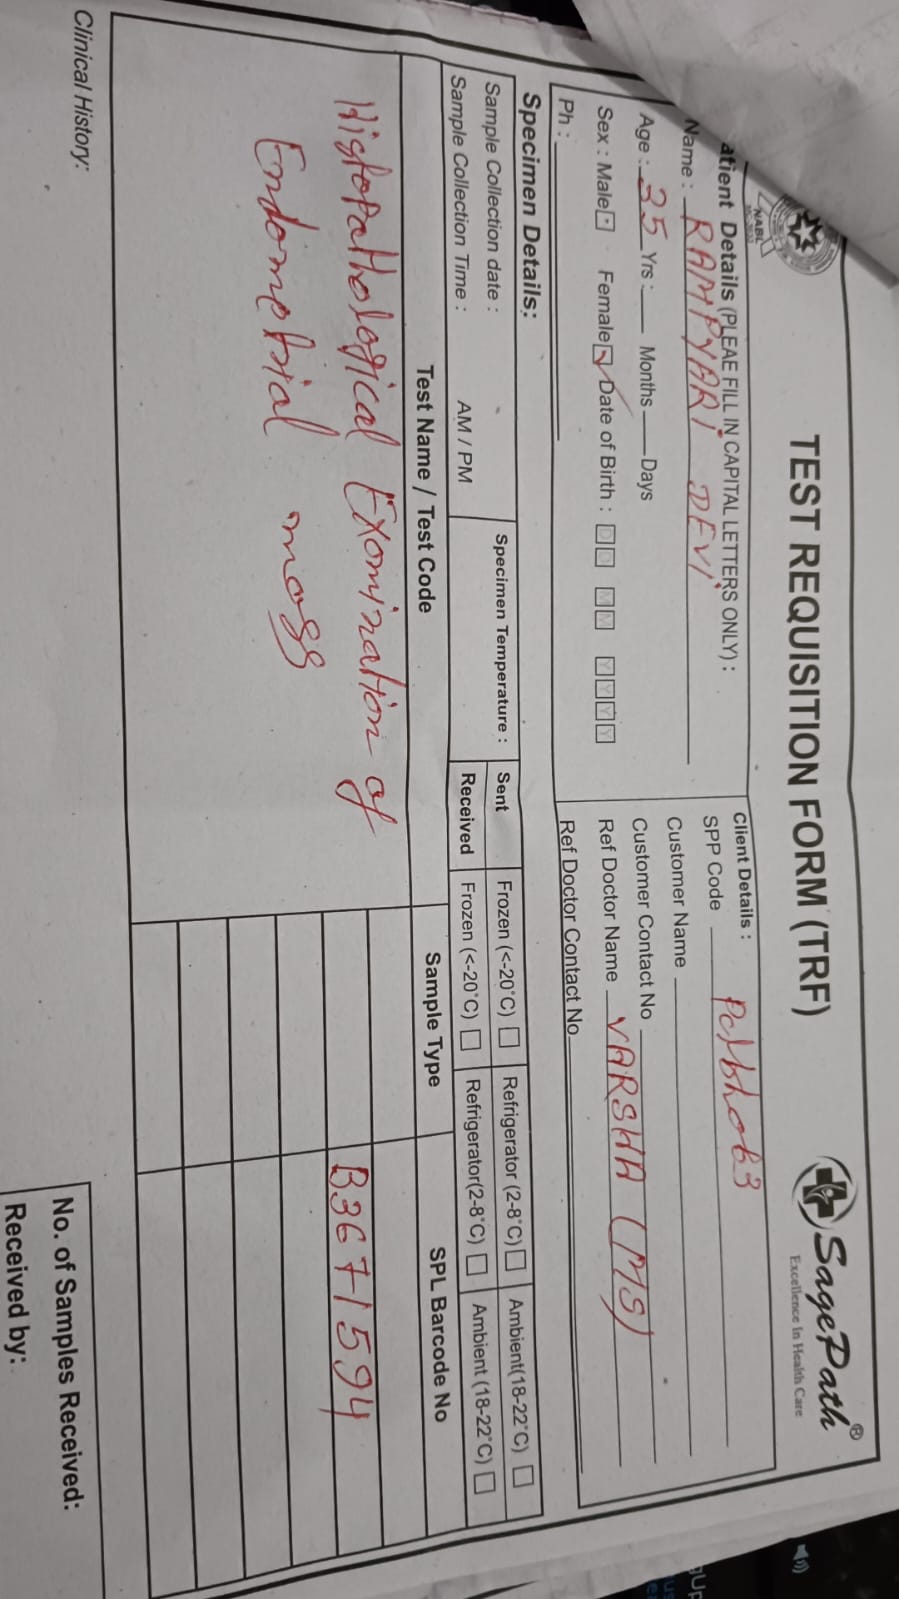 TEST REQUISITION FORM (TRF)
SagePath®
Excellence In Health Care
NABL
atient Details (PLEAE FILL IN CAPITAL LETTERS ONLY) :
Name : RAMPYARI DEVI
Age : 35 Yrs : Months Days
Sex : Male Female Date of Birth : D D M M Y Y Y Y
Ph :
Client Details :
SPP Code
Customer Name
Customer Contact No
Ref Doctor Name VARSHA (MS)
Ref Doctor Contact No
Specimen Details:
Sample Collection date :
Sample Collection Time : AM / PM
Specimen Temperature :
Sent Frozen (<-20°C) Refrigerator (2-8°C) Ambient(18-22°C)
Received Frozen (<-20°C) Refrigerator(2-8°C) Ambient (18-22°C)
Test Name / Test Code Sample Type SPL Barcode No
Histopathological Examination of
Endometrial mass
B3671594
Clinical History:
No. of Samples Received:
Received by: